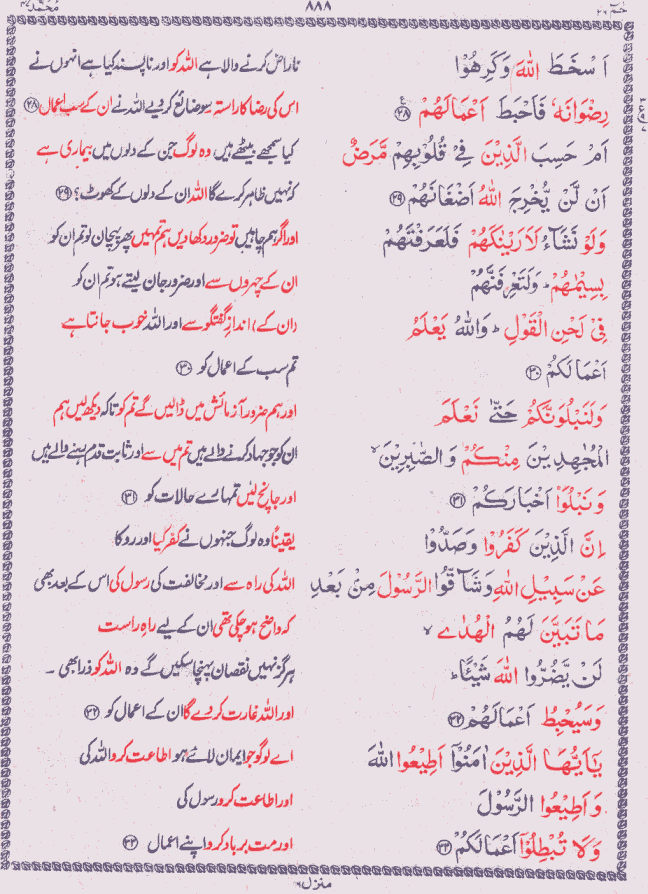 حٰمٓ ۲۶ ۸۸۸ مُحَمَّد ۴۷
اَسْخَطَ اللّٰهَ وَكَرِهُوْا ناراض کرنے والا ہے اللہ کو اور ناپسند کیا ہے انہوں نے
رِضْوَانَهٗ فَاَحْبَطَ اَعْمَالَهُمْ ۲۸ اس کی رضا کا راستہ سو ضائع کر دیے اللہ نے ان کے سب اعمال ۲۸
اَمْ حَسِبَ الَّذِيْنَ فِيْ قُلُوْبِهِمْ مَّرَضٌ کیا سمجھے بیٹھے ہیں وہ لوگ جن کے دلوں میں بیماری ہے
اَنْ لَّنْ يُّخْرِجَ اللّٰهُ اَضْغَانَهُمْ ۲۹ کہ نہیں ظاہر کرے گا اللہ ان کے دلوں کے کھوٹ؟ ۲۹
وَلَوْ نَشَآءُ لَاَرَيْنٰكَهُمْ فَلَعَرَفْتَهُمْ اور اگر ہم چاہیں تو ضرور دکھا دیں ہم تمہیں پھر پہچان لو تم ان کو
بِسِيْمٰهُمْ ؕ وَلَتَعْرِفَنَّهُمْ ان کے چہروں سے اور ضرور جان لیتے ہو تم ان کو
فِيْ لَحْنِ الْقَوْلِ ؕ وَاللّٰهُ يَعْلَمُ (ان کے) اندازِ گفتگو سے اور اللہ خوب جانتا ہے
اَعْمَالَكُمْ ۳۰ تم سب کے اعمال کو ۳۰
وَلَنَبْلُوَنَّكُمْ حَتّٰى نَعْلَمَ اور ہم ضرور آزمائش میں ڈالیں گے تم کو تاکہ دیکھ لیں ہم
الْمُجٰهِدِيْنَ مِنْكُمْ وَالصّٰبِرِيْنَ ۙ ان کو جو جہاد کرنے والے ہیں تم میں سے اور ثابت قدم رہنے والے ہیں
وَنَبْلُوَا۟ اَخْبَارَكُمْ ۳۱ اور جانچ لیں تمہارے حالات کو ۳۱
اِنَّ الَّذِيْنَ كَفَرُوْا وَصَدُّوْا یقیناً وہ لوگ جنہوں نے کفر کیا اور روکا
عَنْ سَبِيْلِ اللّٰهِ وَشَآقُّوا الرَّسُوْلَ مِنْۢ بَعْدِ اللہ کی راہ سے اور مخالفت کی رسول کی اس کے بعد بھی
مَا تَبَيَّنَ لَهُمُ الْهُدٰى ۙ کہ واضح ہو چکی تھی ان کے لیے راہِ راست
لَنْ يَّضُرُّوا اللّٰهَ شَيْـًٔا ؕ ہرگز نہیں نقصان پہنچا سکیں گے وہ اللہ کو ذرا بھی ۔
وَسَيُحْبِطُ اَعْمَالَهُمْ ۳۲ اور اللہ غارت کر دے گا ان کے اعمال کو ۳۲
يٰۤاَيُّهَا الَّذِيْنَ اٰمَنُوْۤا اَطِيْعُوا اللّٰهَ اے لوگو جو ایمان لائے ہو اطاعت کرو اللہ کی
وَاَطِيْعُوا الرَّسُوْلَ اور اطاعت کرو رسول کی
وَلَا تُبْطِلُوْۤا اَعْمَالَكُمْ ۳۳ اور مت برباد کرو اپنے اعمال ۳۳
منزل ۶